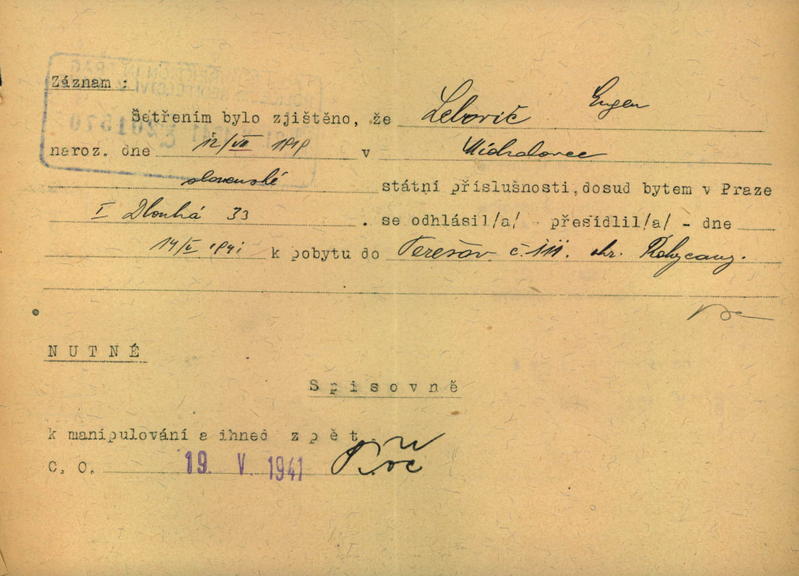 Záznam :
Šetřením bylo zjištěno, že Lebovič Eugen
naroz. dne 12/VII 1919 v Michalovce
slovenské státní příslušnosti, dosud bytem v Praze
I Dlouhá 33 . se odhlásil/a/ - přesídlil/a/ - dne
14/V 1941 k pobytu do Terešov č. 111. okr. Rokycany.
NUTNÉ
Spisovně
k manipulování a ihned zpět
C. O. 19. V. 1941